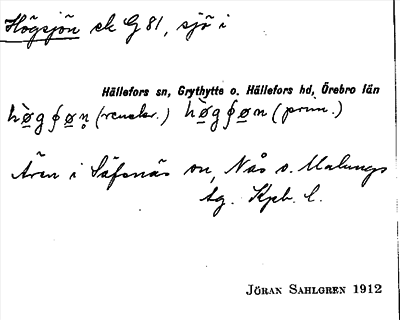 Högsjön ek G 81, sjö i
Hällefors sn, Grythytte o. Hällefors hd, Örebro län
hø̀gʃøn̥ (renskr.) hø̀gʃøn (prim.)
Även i Säfsnäs sn, Nås o. Malungs
tg. Kpb. l.
JÖRAN SAHLGREN 1912